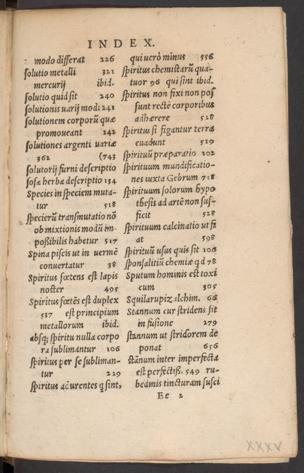 INDEX.
modo differat 226
solutio metalli 321
mercurij ibid.
solutio quid sit 240
solutionis uarij modi 241
solutionem corporũ quæ
promoueant 242
solutiones argenti uariæ
362 (743
solutorij furni descriptio
sosæ herbæ descriptio 134
Species in speciem muta-
tur 518
specierũ transmutatio nõ
ob mixtionis modũ im-
possibilis habetur 517
Spina piscis ut in uermẽ
conuertatur 38
Spiritus fœtens est lapis
noster 405
Spiritus fœtẽs est duplex
517 est principium
metallorum ibid.
absq; spiritu nulla corpo
ra sublimantur 106
spiritus per se subliman-
tur 229
spiritus adurentes q sint,
qui uerò minus 556
spiritus chemistarũ quæ-
tuor 96 qui sint ibid.
Spiritus non fixi non pos
sunt rectè corporibus
adhærere 528
Spiritus si figantur terræ
euadunt 529
Spirituũ præparatio 102
spirituum mundificatio-
nes iuxta Gebrum 718
spirituum solorum hypo
thesis ad artẽ non suf-
ficit 528
spirituum calcinatio ut fi
at 598
spirituũ usus quis sit 106
sponsalitiũ chemiæ qd 78
Sputum hominis est toxi
cum 305
Squilarupiz alchim. 66
Stannum cur stridens sit
in fusione 279
stannum ut stridorem de
ponat 656
stãnum inter imperfecta
est perfectiß. 549 ru-
bedinis tincturam susci
Ee 2
XXXV